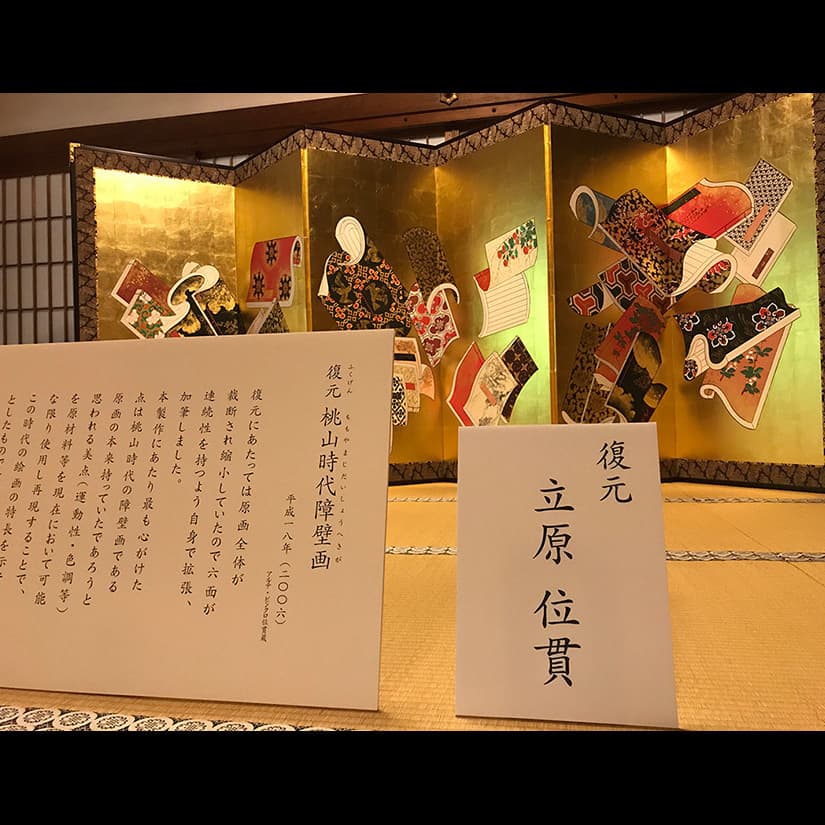 ふくげん ももやまじだいしょうへきが
復元 桃山時代障壁画
平成一八年(二〇〇六)
アルテ・ピッコロ位貫蔵
復元にあたっては原画全体が
裁断され縮小していたので六面が
連続性を持つよう自身で拡張、
加筆しました。
本製作にあたり最も心がけた
点は桃山時代の障壁画である
原画の本来持っていたであろうと
思われる美点(運動性・色調等)
を原材料等を現在において可能
な限り使用し再現することで、
この時代の絵画の特長を示す
としたもので
復元
立原 位貫